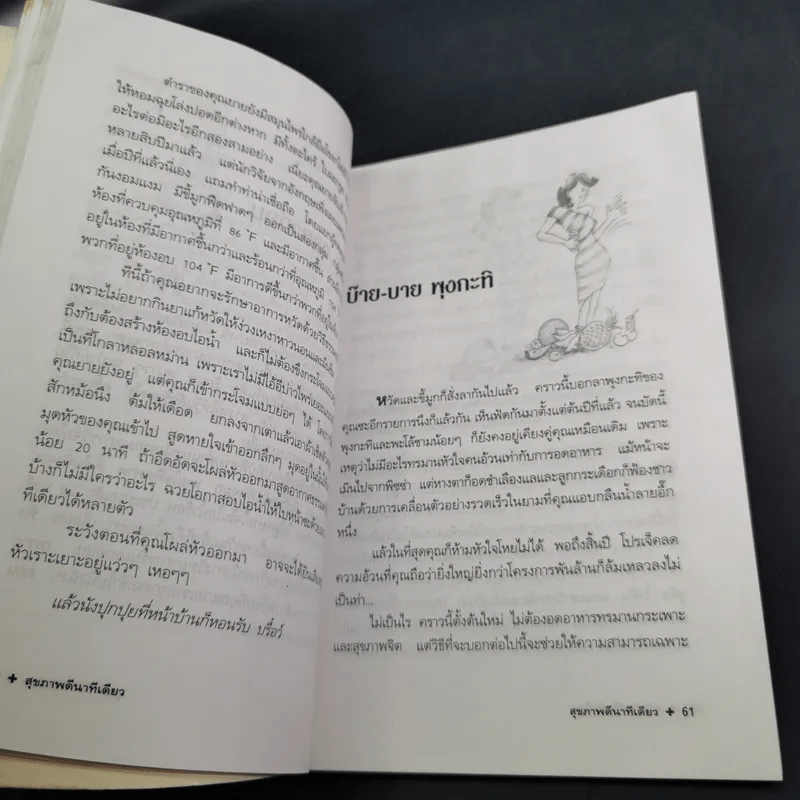 ตำราของคุณยายยังมีสมุนไพรใกล้มือ
ให้หอมฉุยโล่งปอดอีกต่างหาก มีทั้งตะไคร้ ใบมะกรูด
อะไรต่อมิอะไรอีกสองสามอย่าง เนี่ยะคุณยาย
หลายสิบปีมาแล้ว แต่นักวิจัยจากอังกฤษเพิ่ง
เมื่อปีที่แล้วนี่เอง แถมทำท่าน่าเชื่อถือ โดยแยก
กันงอมแงม มีขี้มูกฟืดฟาดๆ ออกเป็นสองกลุ่ม
ห้องที่ควบคุมอุณหภูมิที่ 86 °F และมีอากาศชื้น
อยู่ในห้องที่มีอากาศชื้นกว่าและร้อนกว่าที่อุณหภูมิ 104
พวกที่อยู่ห้องอบ 104 °F มีอาการดีขึ้นกว่าพวกที่อยู่ใน
ทีนี้ถ้าคุณอยากจะรักษาอาการหวัดด้วยวิธี
เพราะไม่อยากกินยาแก้หวัดให้ง่วงเหงาหาวนอน
ถึงกับต้องสร้างห้องอบไอน้ำ และก็ไม่ต้องขึงกระโจม
เป็นที่โกลาหลอลหม่าน เพราะเราไม่มีไอ้อีบ่าวไพร่เยอะ
คุณยายยังอยู่ แต่คุณก็เข้ากระโจมแบบย่อๆ ได้ โดย
สักหม้อนึง ต้มให้เดือด ยกลงจากเตาแล้วเอาผ้าเช็ดตัว
มุดหัวของคุณเข้าไป สูดหายใจเข้าออกลึกๆ มุดอยู่ในนั้น
น้อย 20 นาที ถ้าอึดอัดจะโผล่หัวออกมาสูดอากาศธรรมดา
บ้างก็ไม่มีใครว่าอะไร ฉวยโอกาสอบไอน้ำให้ใบหน้าซะด้วย
ทีเดียวได้หลายตัว
ระวังตอนที่คุณโผล่หัวออกมา อาจจะได้ยินเสียง
หัวเราะเยาะอยู่แว่วๆ เหอๆๆ
แล้วนังปุกปุยที่หน้าบ้านก็หอนรับ บรื๋อว์
✚ สุขภาพดีนาทีเดียว
บ๊าย-บาย พุงกะทิ
หวัดและขี้มูกก็สั่งลากันไปแล้ว คราวนี้บอกลาพุงกะทิของ
คุณซะอีกรายการนึงก็แล้วกัน เห็นฟัดกันมาตั้งแต่ต้นปีที่แล้ว จนบัดนี้
พุงกะทิและพะโล้ชามน้อยๆ ก็ยังคงอยู่เคียงคู่คุณเหมือนเดิม เพราะ
เหตุว่าไม่มีอะไรทรมานหัวใจคนอ้วนเท่ากับการอดอาหาร แม้หน้าจะ
เมินไปจากพิซซ่า แต่หางตาก็อดชำเลืองแลและลูกกระเดือกก็ฟ้องชาว
บ้านด้วยการเคลื่อนตัวอย่างรวดเร็วในยามที่คุณแอบกลืนน้ำลายอึ๊ก
หนึ่ง
แล้วในที่สุดคุณก็ห้ามหัวใจโหยไม่ได้ พอถึงสิ้นปี โปรเจ็คลด
ความอ้วนที่คุณถือว่ายิ่งใหญ่ยิ่งกว่าโครงการพันล้านก็ล้มเหลวลงไม่
เป็นท่า...
ไม่เป็นไร คราวนี้ตั้งต้นใหม่ ไม่ต้องอดอาหารทรมานกระเพาะ
และสุขภาพจิต แต่วิธีที่จะบอกต่อไปนี้จะช่วยให้ความสามารถเฉพาะ
สุขภาพดีนาทีเดียว ✚ 61